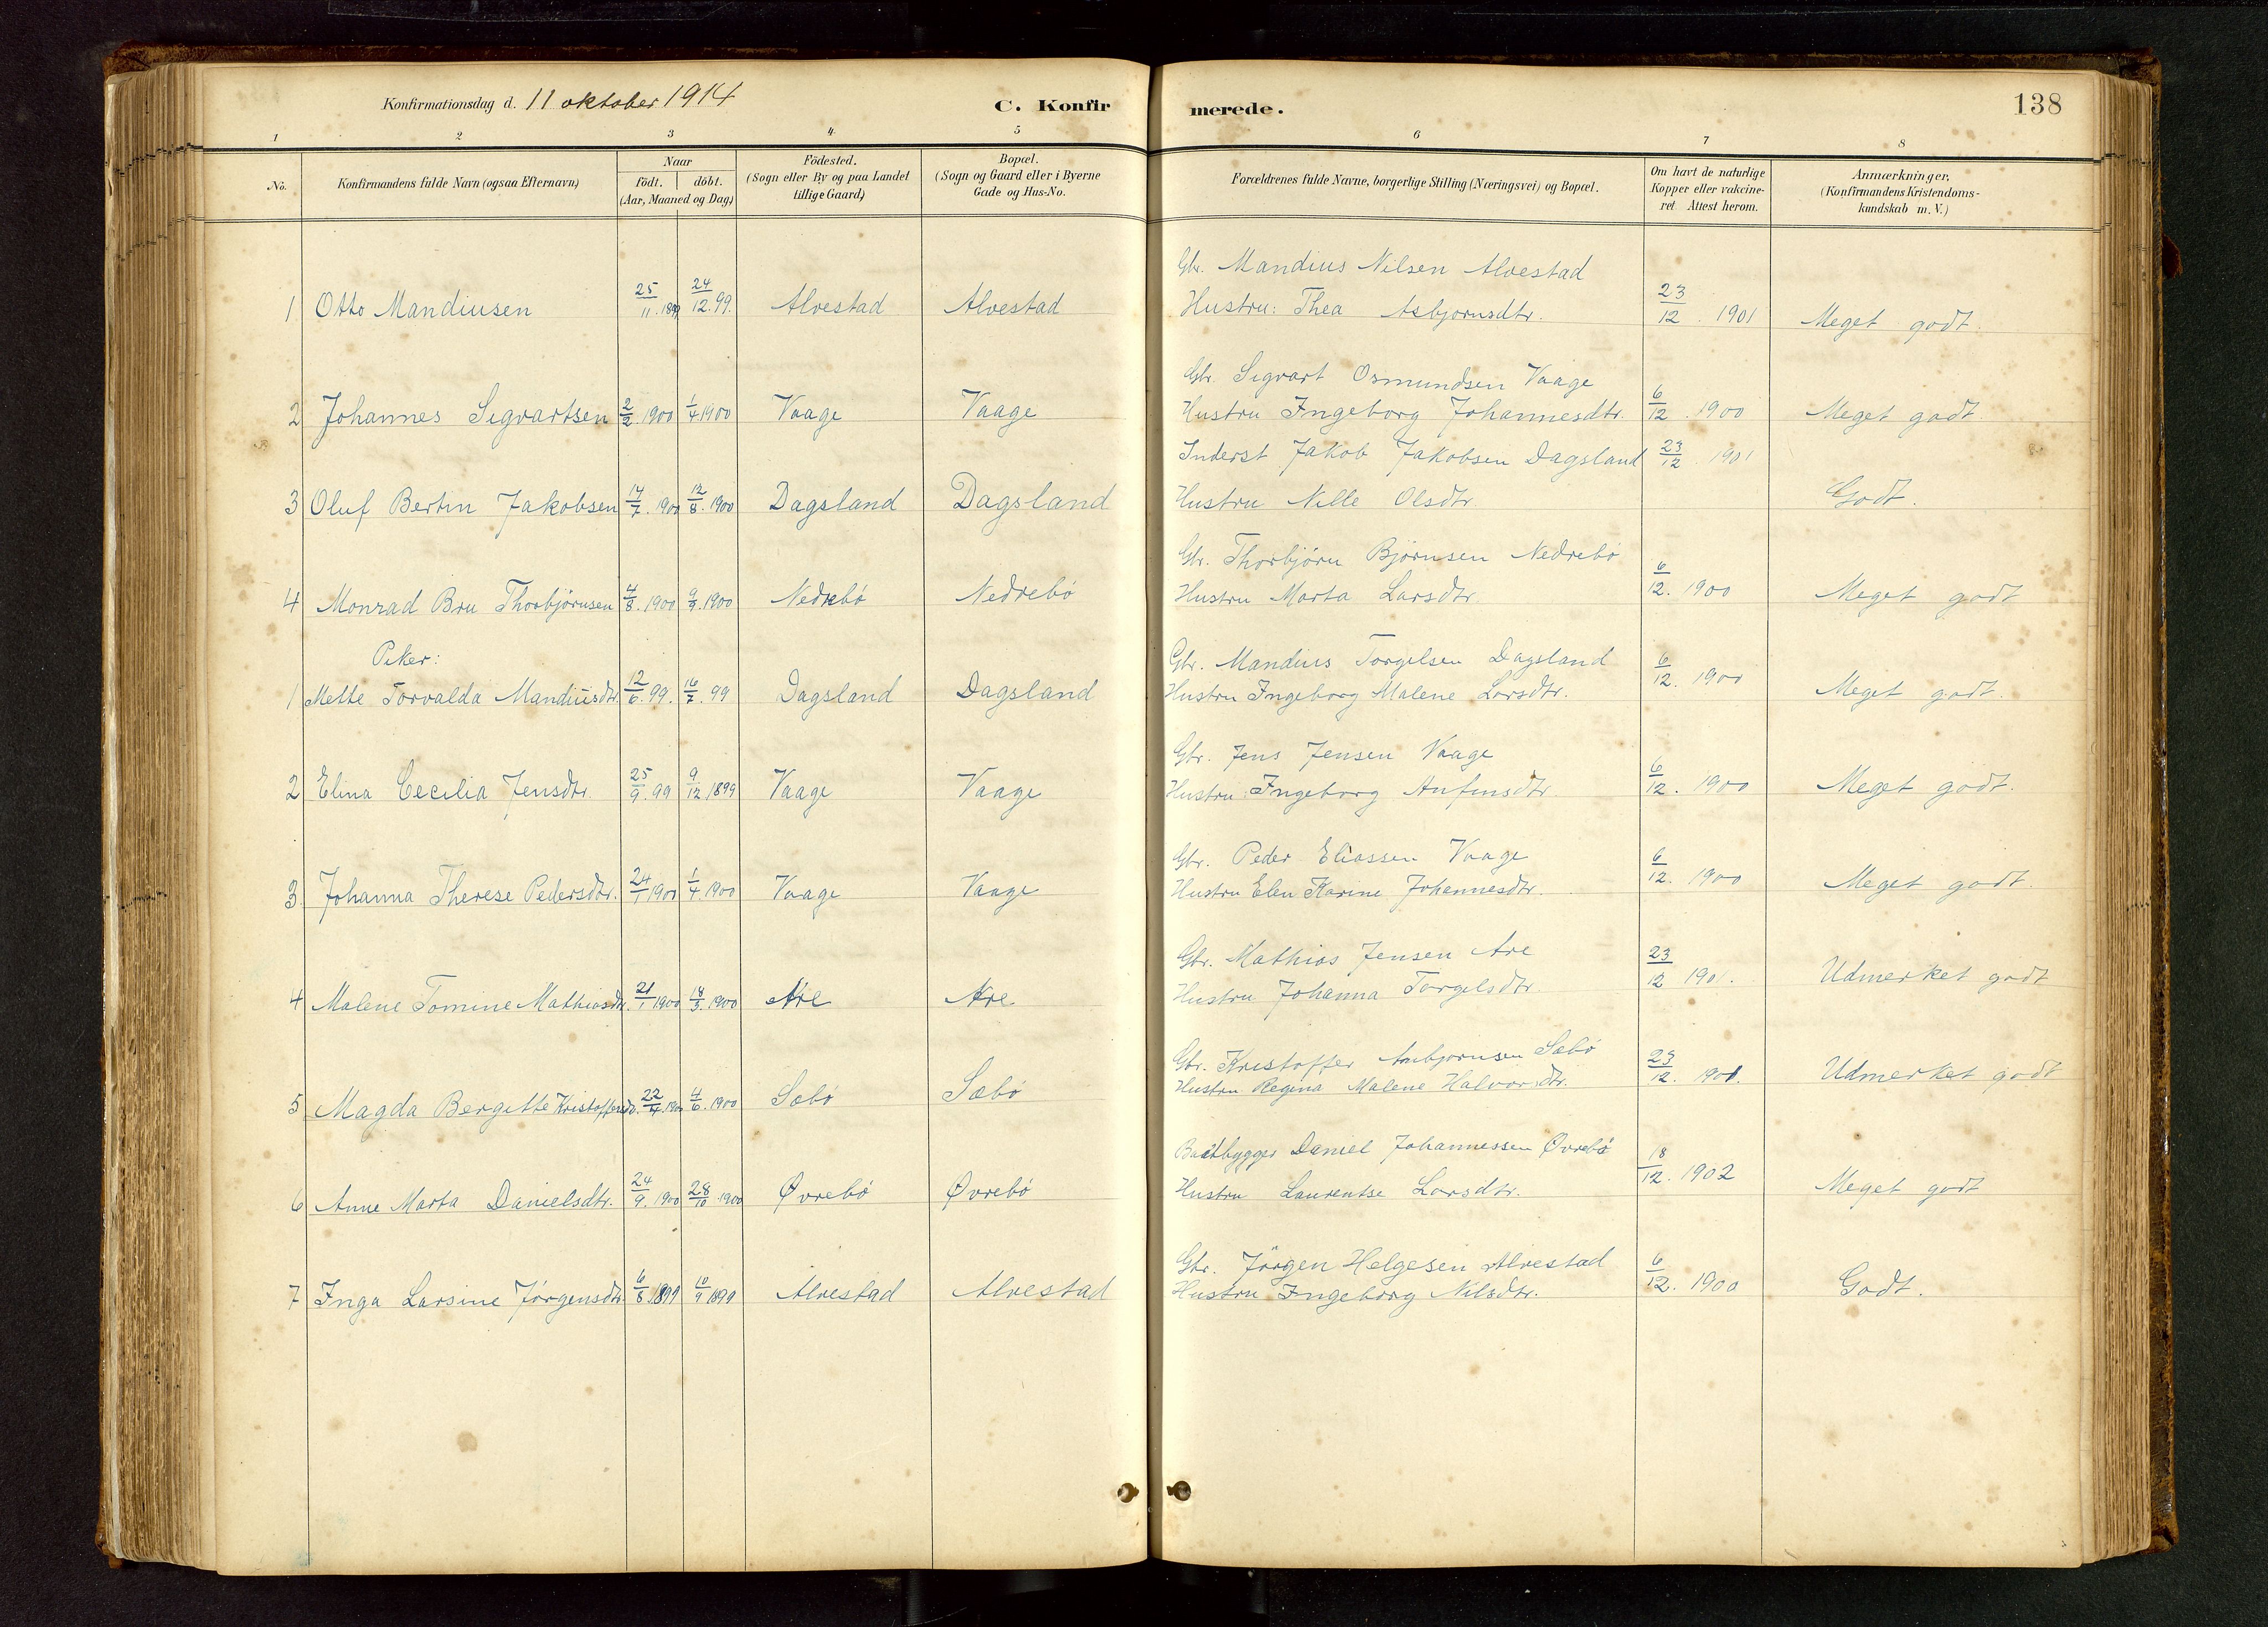 Konfirmationsdag d. 11 oktober 1914
C. Konfirmerede.
138
1 2 3 4 5 6 7 8
No.
Konfirmandens fulde Navn (ogsaa Efternavn)
Naar
födt. döbt.
(Aar, Maaned og Dag)
Födested.
(Sogn eller By og paa Landet
tillige Gaard)
Bopæl.
(Sogn og Gaard eller i Byerne
Gade og Hus-No.
Forældrenes fulde Navne, borgerlige Stilling (Næringsvei) og Bopæl.
Om havt de naturlige
Kopper eller vakcine-
ret Attest herom.
Anmærkninger,
(Konfirmandens Kristendoms-
kundskab m. V.)
Gbr. Mandius Nilsen Alvestad
1 Otto Mandiusen 25/11.1899 24/12.99. Alvestad Alvestad Hustru: Thea Asbjørnsdtr. 23/12. 1901 Meget godt.
Gbr. Sigvart Osmundsen Vaage
2 Johannes Sigvartsen 2/2.1900 1/4 1900 Vaage Vaage Hustru Ingeborg Johannesdtr. 6/12. 1900 Meget godt.
Inderst Jakob Jakobsen Dagsland 23/12. 1901
3 Oluf Bertin Jakobsen 14/7.1900 12/8.1900 Dagsland Dagsland Hustru Nille Olsdtr. Godt.
Gbr. Thorbjörn Björnsen Nedrebö
4 Monrad Bru Thorbjörnsen 4/8.1900 9/9.1900 Nedrebö Nedrebö Hustru Marta Larsdtr. 6/12. 1900 Meget godt
Piker:
Gbr. Mandius Torgelsen Dagsland
1 Mette Torvalda Mandiusdtr. 12/6.99. 16/7.99 Dagsland Dagsland Hustru Ingeborg Malene Larsdtr. 6/12. 1900 Meget godt.
Gbr. Jens Jensen Vaage
2 Elina Cecilia Jensdtr. 25/9.99 9/12.1899 Vaage Vaage Hustru Ingeborg Anfinsdtr. 6/12. 1900 Meget godt.
Gbr. Peder Eliassen Vaage
3. Johanna Therese Pedersdtr. 24/1 1900 1/4.1900 Vaage Vaage Hustru Elen Karine Johannesdtr. 6/12. 1900 Meget godt.
Gbr. Mathias Jensen Are
4 Malene Tomine Mathiasdtr. 21/1 1900 18/3.1900 Are Are Hustru Johanna Torgelsdtr. 23/12 1901. Udmerket godt
Gbr. Kristoffer Sæbö
5 Magda Bergitte Kristoffersdtr. 22/4.1900 4/6.1900 Sæbö Sæbö Hustru Regina Malene Halvorsdtr. 23/12. 1901. Udmerket godt
Baatbygger Daniel Johannessen Øvrebö
6 Anne Marta Danielsdtr. 24/9.1900 28/10.1900 Øvrebö Øvrebö Hustru Laurentse Larsdtr. 18/12. 1902 Meget godt
Gbr. Jörgen Helgesen Alvestad
7 Inga Larsine Jörgensdtr. 6/8.1899 10/9 1899 Alvestad Alvestad Hustru Ingeborg Nilsdtr. 6/12. 1900 Godt.